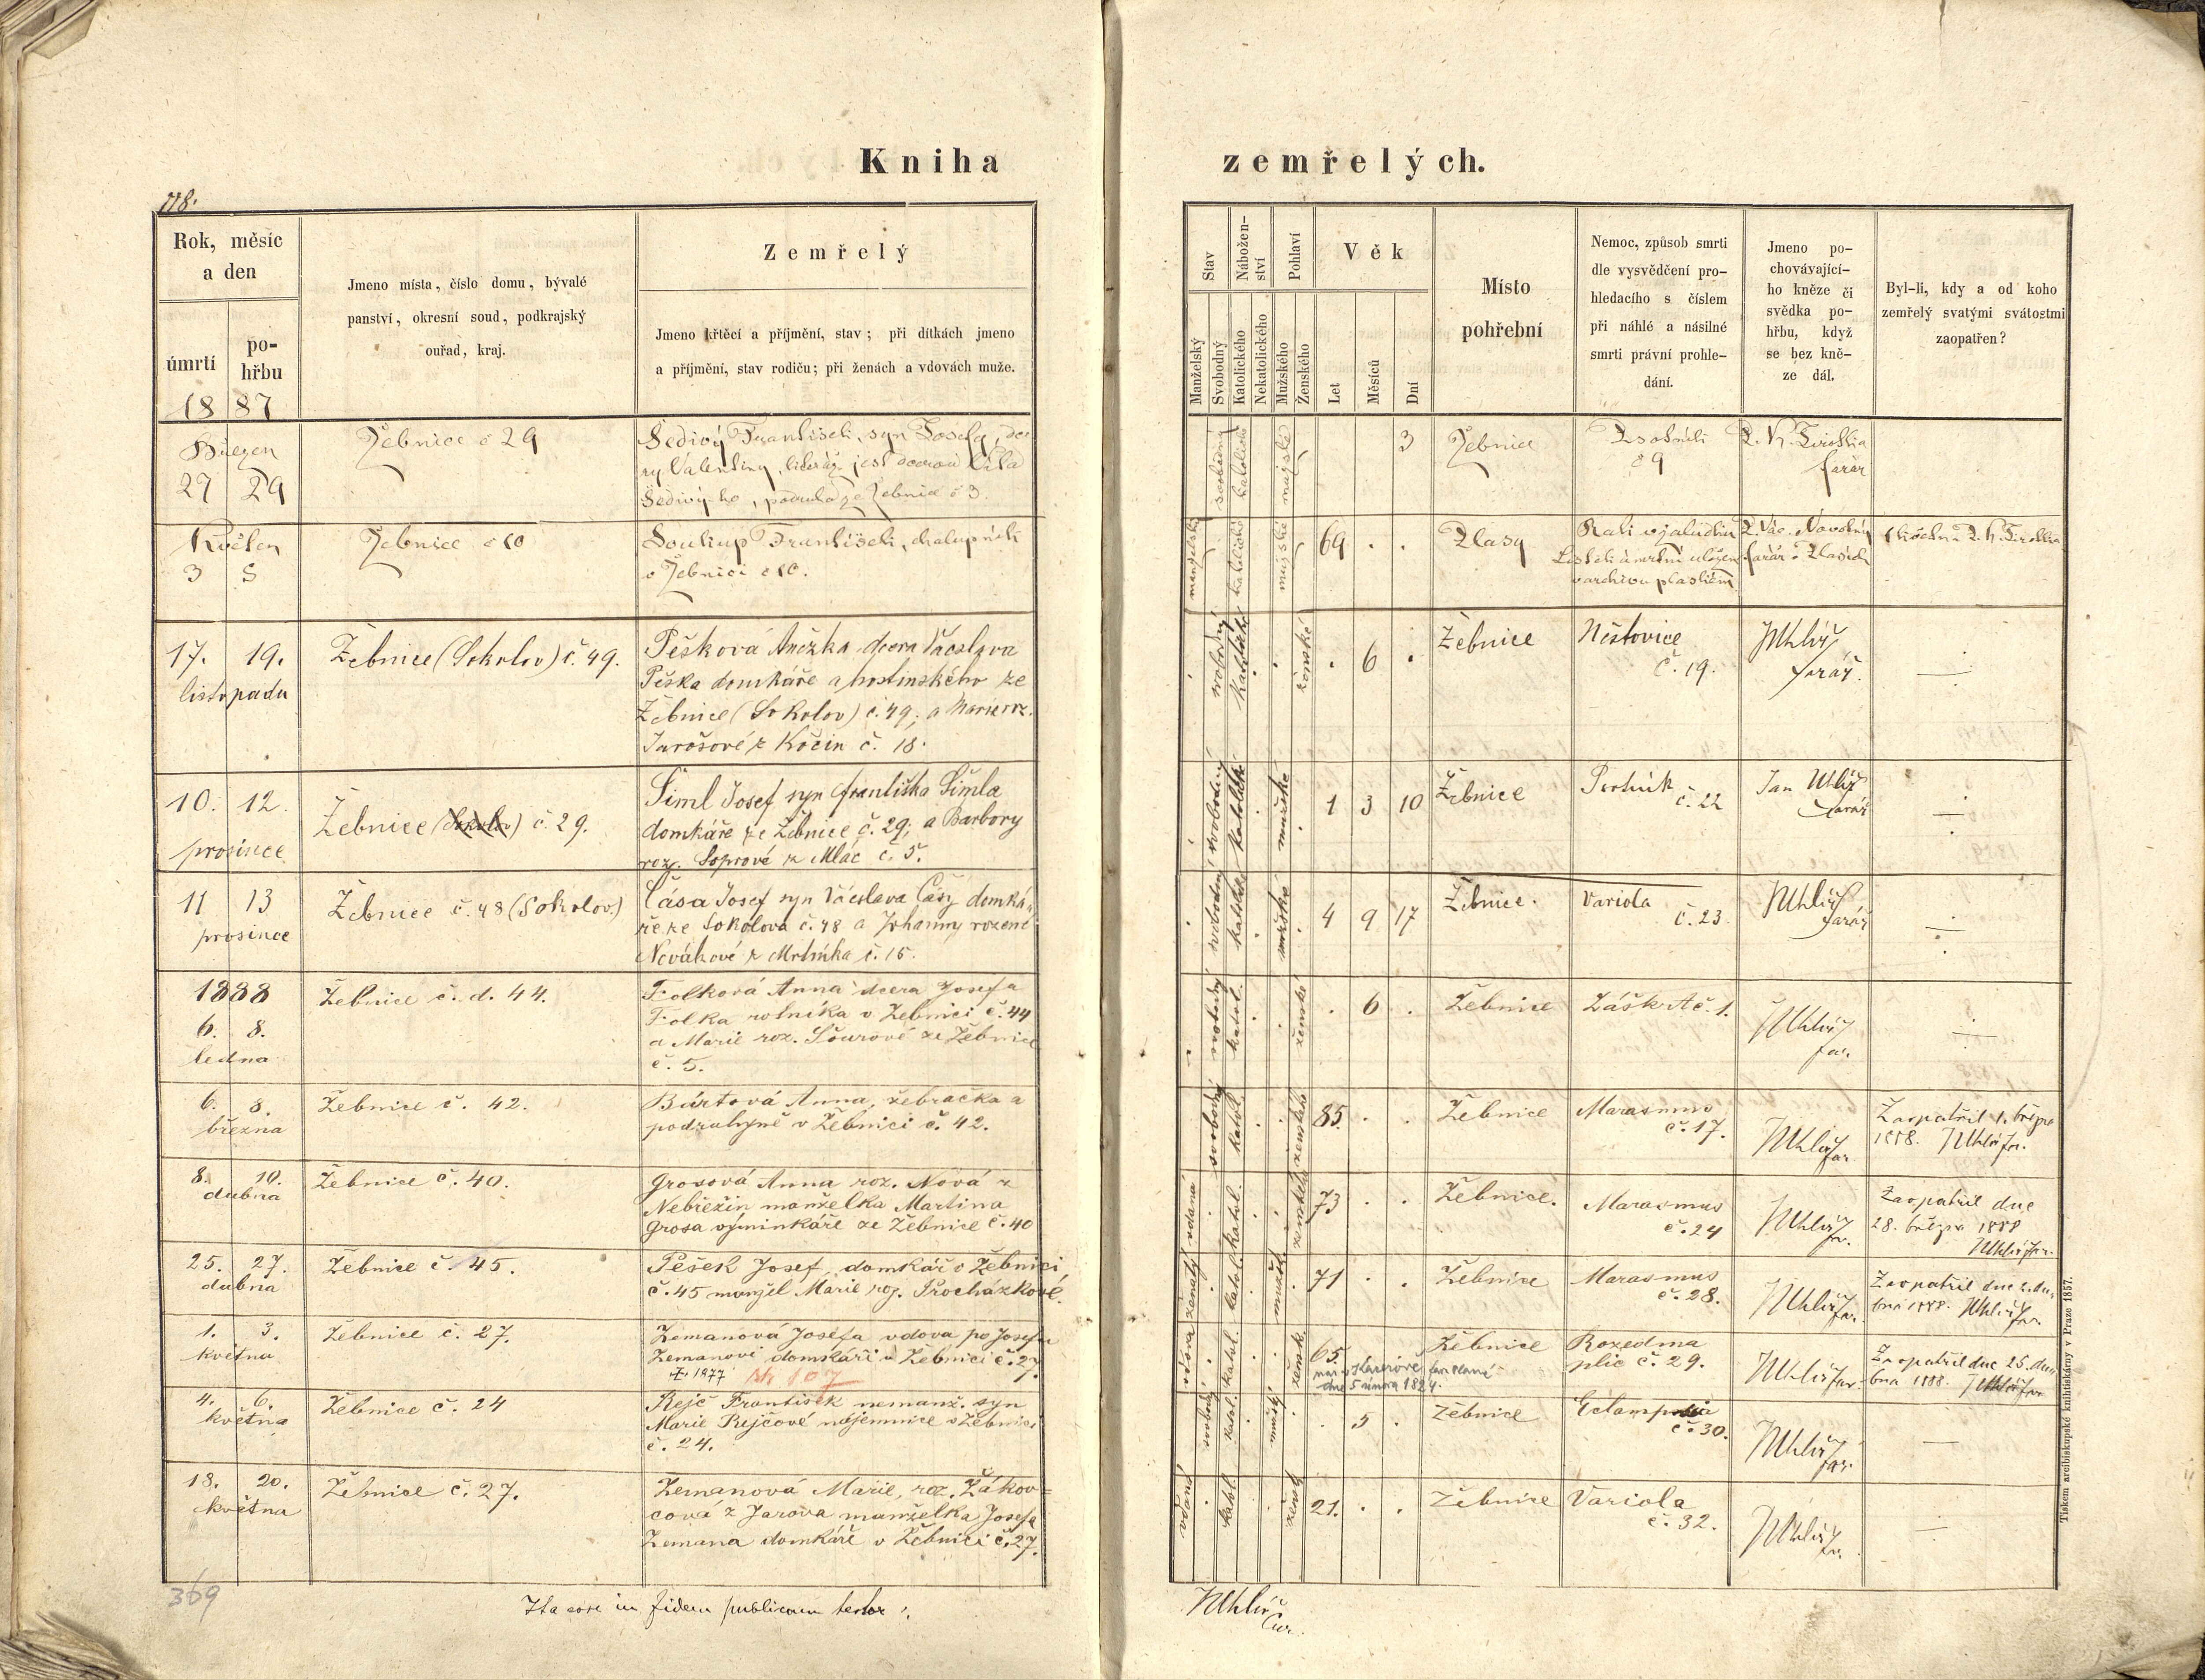 Kniha zemřelých.
118.
Rok, měsíc
a den
úmrtí
po-
hřbu
18 87
Jmeno místa, číslo domu, bývalé
panství, okresní soud, podkrajský
ouřad, kraj.
Zemřelý
Jmeno křtěcí a příjmění, stav; při dítkách jmeno
a příjmění, stav rodiču; při ženách a vdovách muže.
Stav
Manželský
Svobodný
Nábožen-
ství
Katolického
Nekatolického
Pohlaví
Mužského
Ženského
Věk
Let
Měsíců
Dní
Místo
pohřební
Nemoc, způsob smrti
dle vysvědčení pro-
hledacího s číslem
při náhlé a násilné
smrti právní prohle-
dání.
Jmeno po-
chovávající-
ho kněze či
svědka po-
hřbu, když
se bez kně-
ze dál.
Byl-li, kdy a od koho
zemřelý svatými svátostmi
zaopatřen?
Březen
27 29
Žebnice č 29
Šedivý František, syn Josefa, dce
ry Valentiny, kteráž jest dcerou Víta
Šedivý-ho, ze Žebnice č 3.
svobodný
katolické
mužské
3
Žebnice
Psotník
č 9
farář
Květen
3 5
Žebnice č 10
Soukup František, chalupník
v Žebnici č 10.
manželský
katolické
mužské
69
Plasy
Rak v žaludku
Lístek úmrtní uložen
v archivu plaském
P. Vác. Novotný
farář v Plasích
17. 19.
listopadu
Žebnice (Sokolov) č. 49.
Pešková Anežka dcera Václava
Peška domkáře a hostinského ze
Žebnice (Sokolov) č. 49; a Marie roz.
Jarošové z Kočin č. 18.
svobodný
katolické
ženské
6
Žebnice
Neštovice
č. 19.
JUhlíř
farář.
10. 12.
prosince
Žebnice (Sokolov) č. 29.
Šiml Josef syn Františka Šimla
domkáře ze Žebnice č. 29; a Barbory
roz. Soprové z Mlác č. 5.
svobodný
katolické
mužské
1 3 10
Žebnice
Psotník
č. 22
Jan Uhlíř
farář
11 13
prosince
Žebnice č. 48 (Sokolov.)
Čása Josef syn Václava Čásy domká-
ře ze Sokolova č. 48 a Johanny rozené
Novákové z Mrtníka č. 15.
svobodný
katolické
mužské
4 9 17
Žebnice.
Variola
č. 23.
JUhlíř
farář
1888
6. 8.
ledna
Žebnice č. d. 44.
Folková Anna dcera Josefa
Folka rolníka v Žebnici č. 44
a Marie roz. Šourové ze Žebnice
č. 5.
svobodný
katol.
ženské
6
Žebnice
Záškrt č. 1.
JUhlíř
far.
6. 8.
března
Žebnice č. 42.
Búrtová Anna, žebračka a
podruhyně v Žebnici č. 42.
svobodný
katol.
ženského
85.
Žebnice
Marasmus
č. 17.
JUhlíř
far.
Zaopatřil 1. března
1888. JUhlíř far.
8. 10.
dubna
Žebnice č. 40.
Grosová Anna roz. Nová z
Nebřežin manželka Martina
Grosa výminkáře ze Žebnice č. 40
vdaná
katol.
ženského
73
Žebnice.
Marasmus
č. 24
JUhlíř
far.
Zaopatřil dne
28. března 1888
JUhlíř far.
25. 27.
dubna
Žebnice č. 45.
Pešek Josef, domkář v Žebnici
č. 45 manžel Marie roz. Procházkové.
ženatý
katol.
mužské
71
Žebnice
Marasmus
č. 28.
JUhlíř far.
Zaopatřil dne 2. du-
bna 1888. JUhlíř far.
1. 3.
května
Žebnice č. 27.
Zemanová Josefa vdova po Josefu
Zemanovi domkáři v Žebnici č. 27.
1877 107
vdova
katol.
žensk.
65.
dne 5 února 1824.
Žebnice
Rozedma
plic č. 29.
JUhlíř far.
Zaopatřil dne 25. du-
bna 1888. JUhlíř far.
4. 6.
května
Žebnice č. 24
Rejč František nemanž. syn
Marie Rejčové nájemnice v Žebnici
č. 24.
svobodný
katol.
mužský
5
Žebnice
Eclampsia
č. 30.
JUhlíř
far.
18. 20.
května
Žebnice č. 27.
Zemanová Marie, roz. Žákov-
cová z Jarova manželka Josefa
Zemana domkáře v Žebnici č. 27.
vdaná
katol.
žensk.
21.
Žebnice
Variola
č. 32.
JUhlíř
far.
Tiskem arcibiskupské knihtiskárny v Praze 1857.
369
Ita esse in fidem publicam testor:
JUhlíř
Cur.